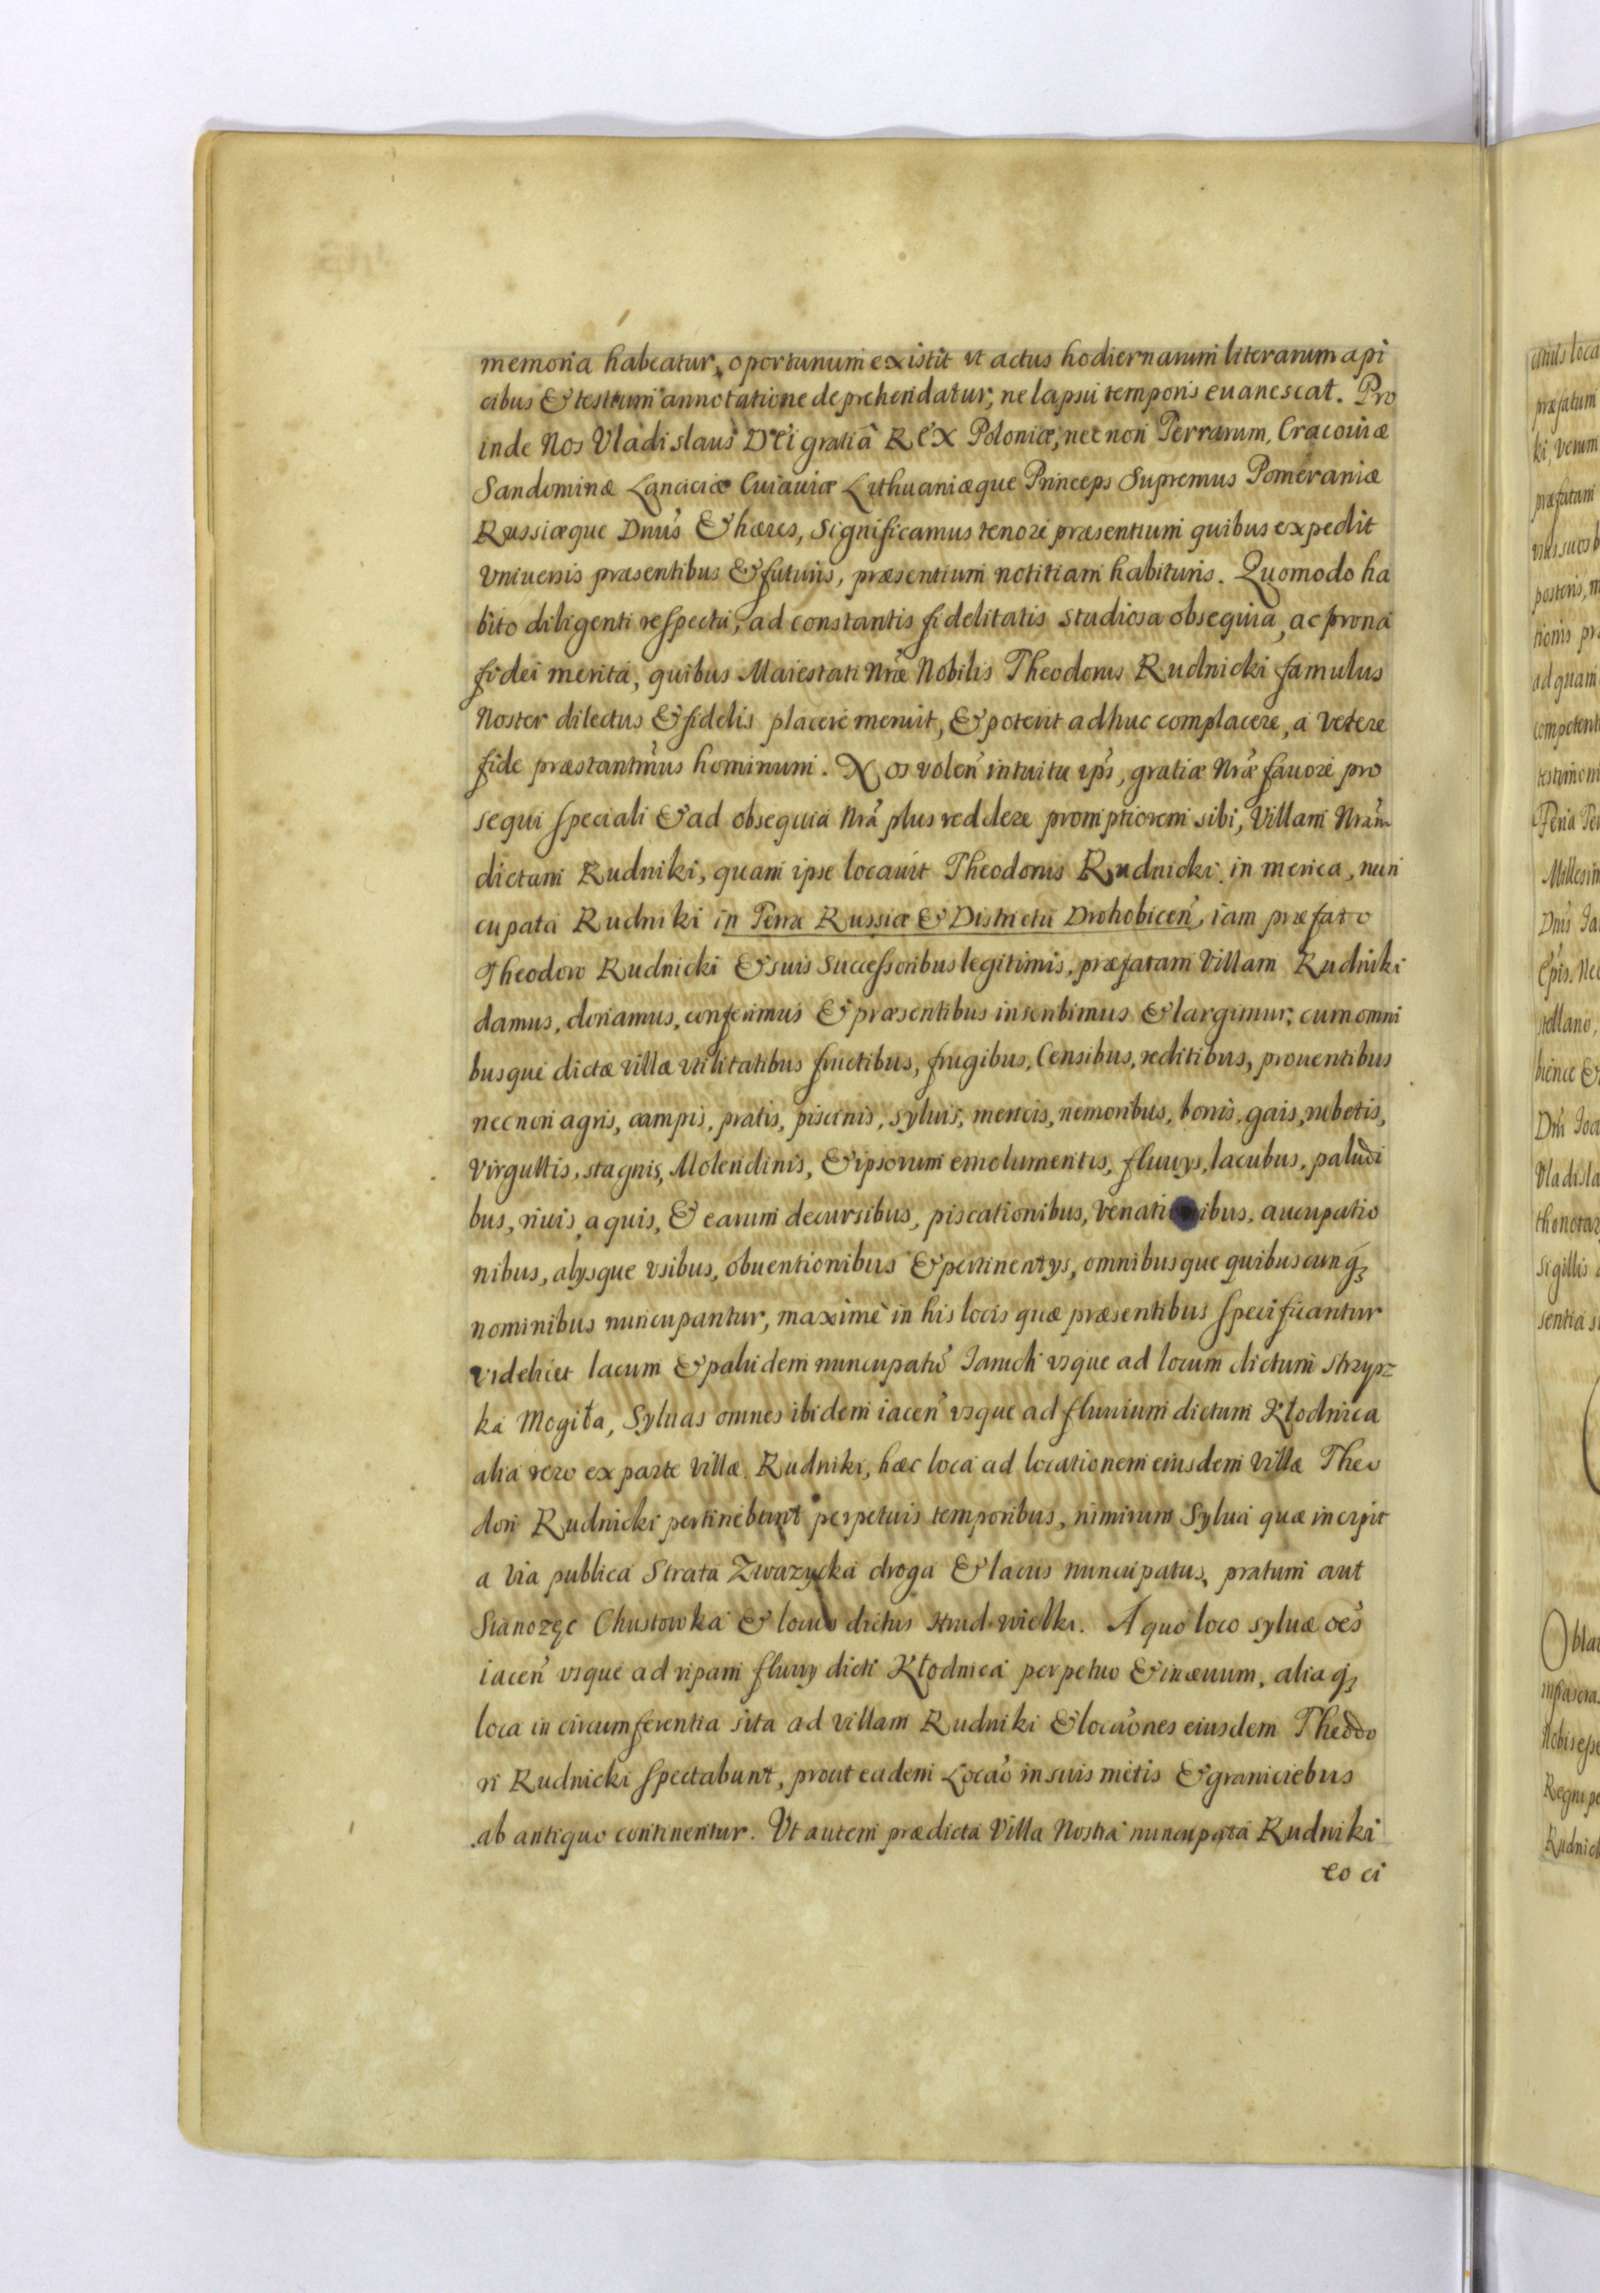 memoria habeatur, oportunum existit vt actus hodiernarum literarum api
cibus & testium annotatione deprehendatur, ne lapsu temporis euanescat. Pro
inde Nos Vladislaus Dei gratiâ Rex Poloniæ, nec non Terrarum, Cracouiæ
Sandomiriæ Lanciciæ Cuiauiæ Lithuaniæque Princeps Supremus Pomeraniæ
Russiæque Dnus & hæres, Significamus tenore præsentium quibus expedit
Vniuersis præsentibus & futuris, præsentium notitiam habituris. Quomodo ha
bito diligenti respectu, ad constantis fidelitatis studiosa obsequia, ac prona
fidei merita, quibus Maiestati Nræ Nobilis Theodorus Rudnicki famulus
Noster dilectus & fidelis placere meruit, & poterit adhuc complacere, a vetere
fide præstantmus hominum. Nos volen intuitu ips, gratiæ Nræ fauore pro
sequi speciali & ad obsequia Nra plus reddere promptiorem sibi, Villam Nram
dictam Rudniki, quam ipse locauit Theodorus Rudnicki in merica, nun
cupata Rudniki in Terra Russiæ & Districtu Drohobicen, iam præfato
Theodoro Rudnicki & suis Successoribus legitimis, præfatam Villam Rudniki
damus, donamus, conferimus & præsentibus inscribimus & largimur, cum omni
busque dictæ villæ vtilitatibus fructibus, frugibus, Censibus, reditibus, prouentibus
nec non agris, campis, pratis, piscinis, syluis, mericis, nemoribus, bonis, gais, rubetis,
Virgultis, stagnis, Molendinis, & ipsorum emolumentis, fluuys, lacubus, paludi
bus, riuis, aquis, & earum decursibus, piscationibus, Venati ibus, aucupatio
nibus, alysque vsibus, obuentionibus & pertinentys, omnibusque quibuscunq;
nominibus nuncupantur, maximè in his locis quæ præsentibus specificantur
videlicet lacum & paludem nuncupatu Ianuch vsque ad locum dictum Strzyp=
ka Mogiła, Syluas omnes ibidem iacen vsque ad fluuium dictum Kłodnica
alia vero ex parte Villæ Rudniki, hæc loca ad locationem eiusdem Villæ Theo
dori Rudnicki pertinebunt perpetuis temporibus, nimirum Sylua quæ incipit
a via publica Strata Zwazycka droga & lacus nuncupatus, pratum aut
Sianozęc Chustowka & locus dictus Hrud wielki. A quo loco syluæ oes
iacen vsque ad ripam fluuy dicti Kłodnica perpetuo & in æuum, alia q;
loca in circumferentia sita ad villam Rudniki & locaones eiusdem Theodo
ri Rudnicki spectabunt, prout eadem Locao in suis metis & graniciebus
ab antiquo continentur. Vt autem prædicta Villa Nostra nuncupata Rudniki
eo ci